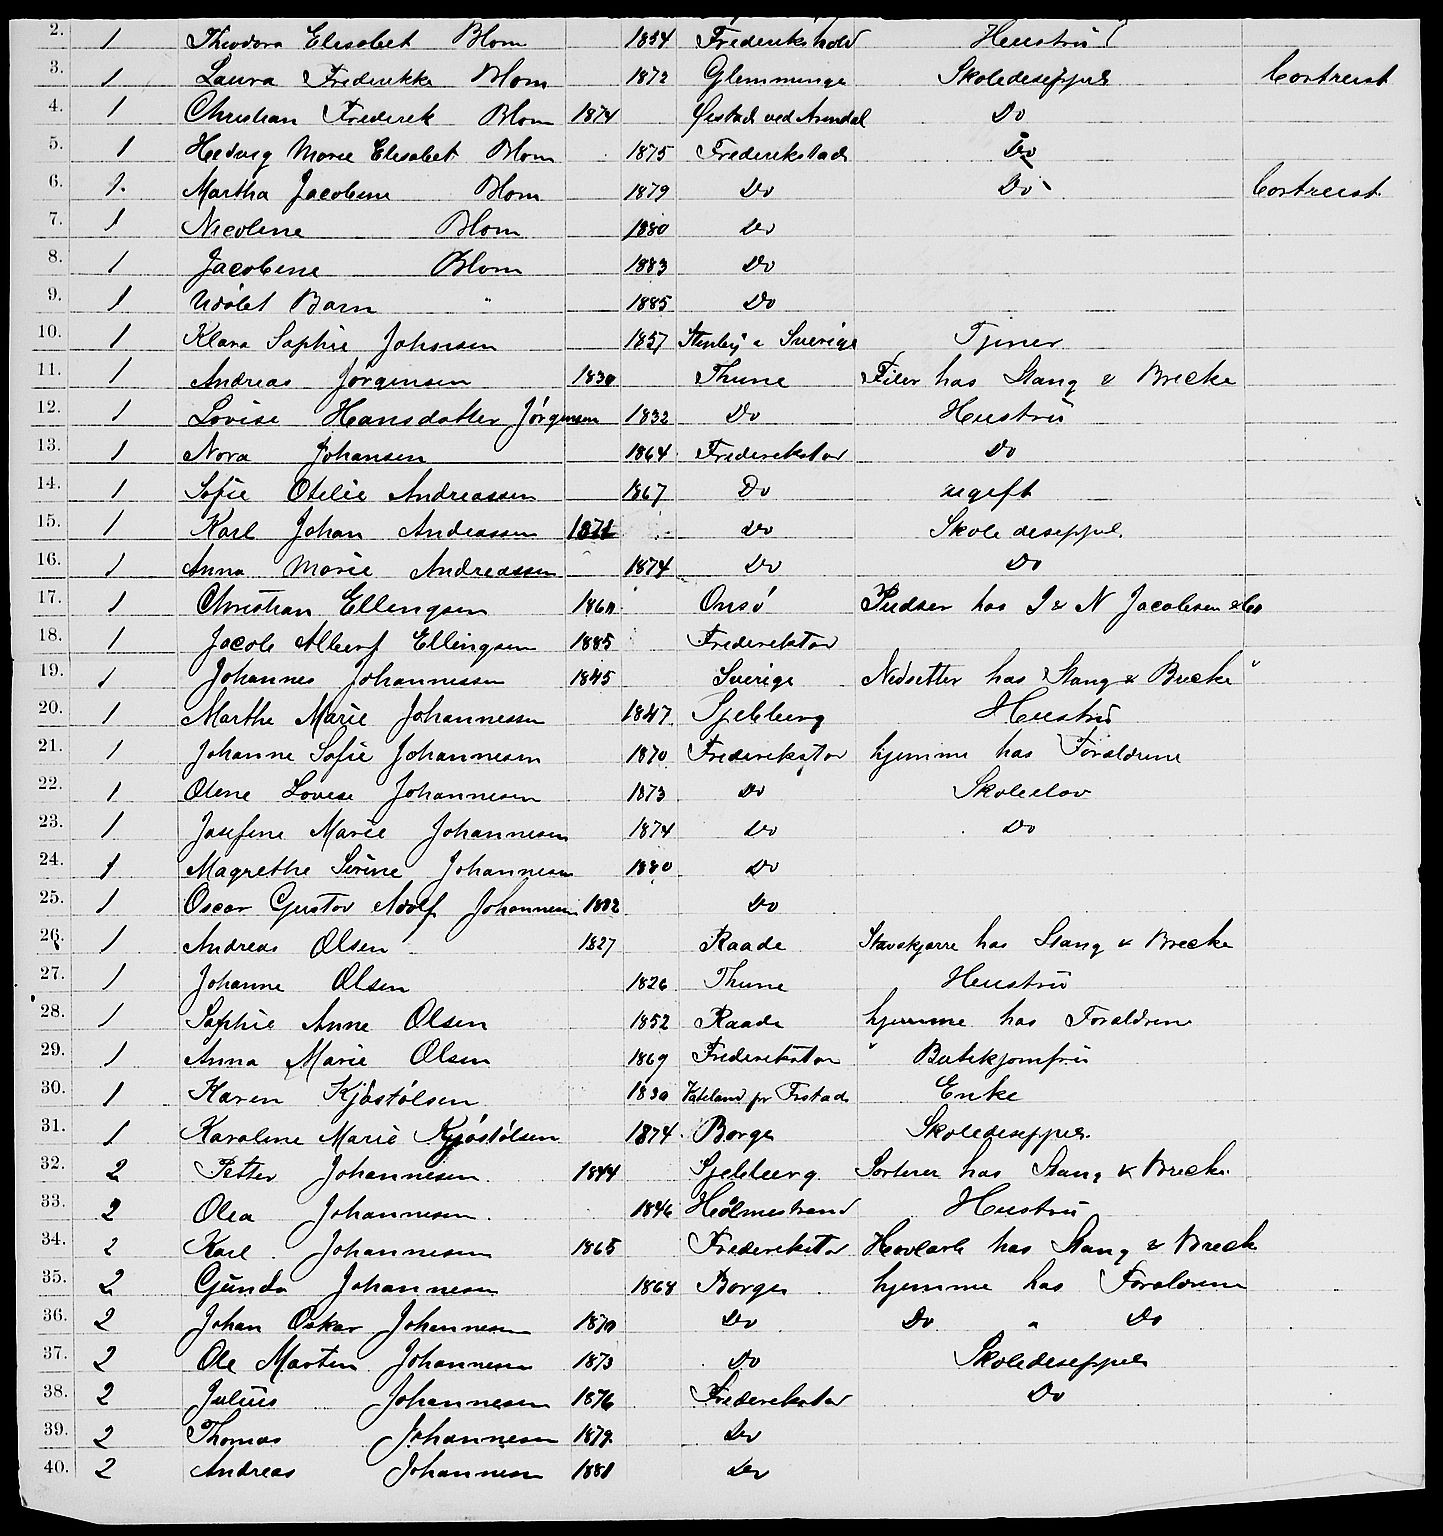 2. 1 Theodora Elisabet Blom 1854 Frederikshald Hustru
3. 1 Laura Frederikke Blom 1872 Glemminge Skoledeseppel bortreist
4. 1 Christian Frederik Blom 1874 Øiestad ved Arendal Do
5. 1 Hedvig Marie Elisabet Blom 1875 Frederikstad Do
6. 1 Martha Jacobine Blom 1879 Do Do bortreist
7. 1 Nicoline Blom 1880 Do
8. 1 Jacobine Blom 1883 Do
9. 1 Udøbt Barn " 1885 Do
10. 1 Klara Sophie Johnsen 1857 Sverige Tjener
11. 1 Andreas Jørgensen 1830 Thune Filer hos Stang & Brecke
12. 1 Lovise Hansdatter Jørgensen 1832 Do Hustru
13. 1 Nora Johansen 1864 Frederikstad Do
14. 1 Sofie Otelie Andreassen 1867 Do ugift
15. 1 Karl Johan Andreassen 1871 Do Skoledeseppel.
16. 1 Anna Marie Andreassen 1874 Do Do
17. 1 Christian Ellingsen 1860 Onsø Pudser hos I & N Jacobsen & Co
18. 1 Jacob Albert Ellingsen 1885 Frederikstad
19. 1 Johannes Johannessen 1845 Sverige Nedsetter hos Stang & Brecke "
20. 1 Marthe Marie Johannessen 1847 Sjeberg Hustru
21. 1 Johanne Sofie Johannesen 1870 Frederikstad hjemme hos Foraldrene
22. 1 Oline Lovise Johannesen 1873 Do Skoleelev
23. 1 Josefine Marie Johannesen 1874 Do Do
24. 1 Magrethe Sirine Johannesen 1880 Do
25. 1 Oscar Gustav Adolf Johannesen 1882 Do
26. 1 Andreas Olsen 1827 Raade Stavskjærre hos Stang & Brecke
27. 1 Johanne Olsen 1826 Thune Hustru
28. 1 Sophie Anne Olsen 1852 Raade hjemme hos Foraldren
29. 1 Anna Marie Olsen 1869 Frederikstad " Butikjomfru
30. 1 Karen Kjøstølsen 1830 pr Frstad Enke
31. 1 Karoline Marie Kjøstølsen 1874 Borge Skoledeseppel.
32. 2 Petter Johannesen 1844 Sjeberg Sorterer hos Stang & Brecke
33. 2 Olea Johannesen 1846 Holmestrand Hustru
34. 2 Karl Johannesen 1865 Frederikstad Høvlarb hos Stang & Brecke
35. 2 Gunda Johannesen 1868 Borge hjemme hos Foraldrene
36. 2 Johan Oskar Johannesen 1870 Do Do " Do
37. 2 Ole Martin Johannesen 1873 Do Skoledeseppel
38. 2 Julius Johannesen 1876 Frederikstad Do
39. 2 Thomas Johannesen 1879 Do
40. 2 Andreas Johannesen 1881 Do